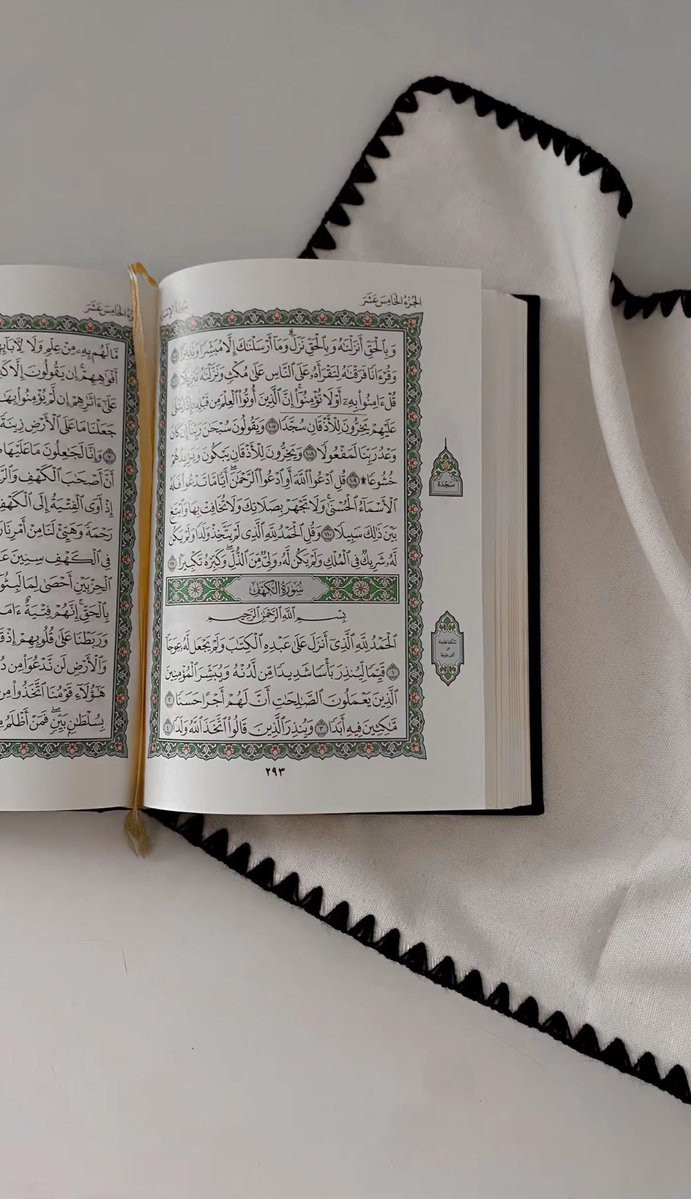 الجُزْءُ الخَامِسَ عَشَرَ
سُورَةُ
وَبِٱلْحَقِّ أَنزَلْنَٰهُ وَبِٱلْحَقِّ نَزَلَ ۗ وَمَآ أَرْسَلْنَٰكَ إِلَّا مُبَشِّرًا وَنَذِيرًا ١٠٥
وَقُرْءَانًا فَرَقْنَٰهُ لِتَقْرَأَهُۥ عَلَى ٱلنَّاسِ عَلَىٰ مُكْثٍ وَنَزَّلْنَٰهُ تَنزِيلًا ١٠٦
قُلْ ءَامِنُوا۟ بِهِۦٓ أَوْ لَا تُؤْمِنُوٓا۟ ۚ إِنَّ ٱلَّذِينَ أُوتُوا۟ ٱلْعِلْمَ مِن قَبْلِهِۦٓ إِذَا يُتْلَىٰ
عَلَيْهِمْ يَخِرُّونَ لِلْأَذْقَانِ سُجَّدًا ١٠٧ وَيَقُولُونَ سُبْحَٰنَ رَبِّنَآ إِن كَانَ
وَعْدُ رَبِّنَا لَمَفْعُولًا ١٠٨ وَيَخِرُّونَ لِلْأَذْقَانِ يَبْكُونَ وَيَزِيدُهُمْ
خُشُوعًا ۩ ١٠٩ قُلِ ٱدْعُوا۟ ٱللَّهَ أَوِ ٱدْعُوا۟ ٱلرَّحْمَٰنَ ۖ أَيًّا مَّا تَدْعُوا۟ فَلَهُ
ٱلْأَسْمَآءُ ٱلْحُسْنَىٰ ۚ وَلَا تَجْهَرْ بِصَلَاتِكَ وَلَا تُخَافِتْ بِهَا وَٱبْتَغِ
بَيْنَ ذَٰلِكَ سَبِيلًا ١١٠ وَقُلِ ٱلْحَمْدُ لِلَّهِ ٱلَّذِى لَمْ يَتَّخِذْ وَلَدًا وَلَمْ يَكُن
لَّهُۥ شَرِيكٌ فِى ٱلْمُلْكِ وَلَمْ يَكُن لَّهُۥ وَلِىٌّ مِّنَ ٱلذُّلِّ ۖ وَكَبِّرْهُ تَكْبِيرًۢا ١١١
سُورَةُ الكَهْفِ
بِسْمِ ٱللَّهِ ٱلرَّحْمَٰنِ ٱلرَّحِيمِ
ٱلْحَمْدُ لِلَّهِ ٱلَّذِىٓ أَنزَلَ عَلَىٰ عَبْدِهِ ٱلْكِتَٰبَ وَلَمْ يَجْعَل لَّهُۥ عِوَجَا
١ قَيِّمًا لِّيُنذِرَ بَأْسًا شَدِيدًا مِّن لَّدُنْهُ وَيُبَشِّرَ ٱلْمُؤْمِنِينَ
ٱلَّذِينَ يَعْمَلُونَ ٱلصَّٰلِحَٰتِ أَنَّ لَهُمْ أَجْرًا حَسَنًا ٢
مَّٰكِثِينَ فِيهِ أَبَدًا ٣ وَيُنذِرَ ٱلَّذِينَ قَالُوا۟ ٱتَّخَذَ ٱللَّهُ وَلَدًا ٤
٢٩٣
سَجْدَة
الجُزْءُ الخَامِسَ عَشَرَ
مَّا لَهُم بِهِۦ مِنْ عِلْمٍ وَلَا
أَفْوَٰهِهِمْ ۚ إِن يَقُولُونَ إِلَّا
عَلَىٰٓ ءَاثَٰرِهِمْ إِن لَّمْ يُؤْمِنُوا۟
جَعَلْنَا مَا عَلَى ٱلْأَرْضِ زِينَةً
٧ وَإِنَّا لَجَٰعِلُونَ مَا عَلَيْهَا
أَنَّ أَصْحَٰبَ ٱلْكَهْفِ
إِذْ أَوَى ٱلْفِتْيَةُ إِلَى ٱلْكَهْفِ
رَحْمَةً وَهَيِّئْ لَنَا مِنْ أَمْرِنَا
فِى ٱلْكَهْفِ سِنِينَ
ٱلْحِزْبَيْنِ أَحْصَىٰ لِمَا لَبِثُوٓا۟
بِٱلْحَقِّ ۚ إِنَّهُمْ فِتْيَةٌ
وَرَبَطْنَا عَلَىٰ قُلُوبِهِمْ إِذْ
وَٱلْأَرْضِ لَن نَّدْعُوَا۟ مِن
هَٰٓؤُلَآءِ قَوْمُنَا ٱتَّخَذُوا۟ مِن
بِسُلْطَٰنٍۭ بَيِّنٍ ۖ فَمَنْ أَظْلَمُ